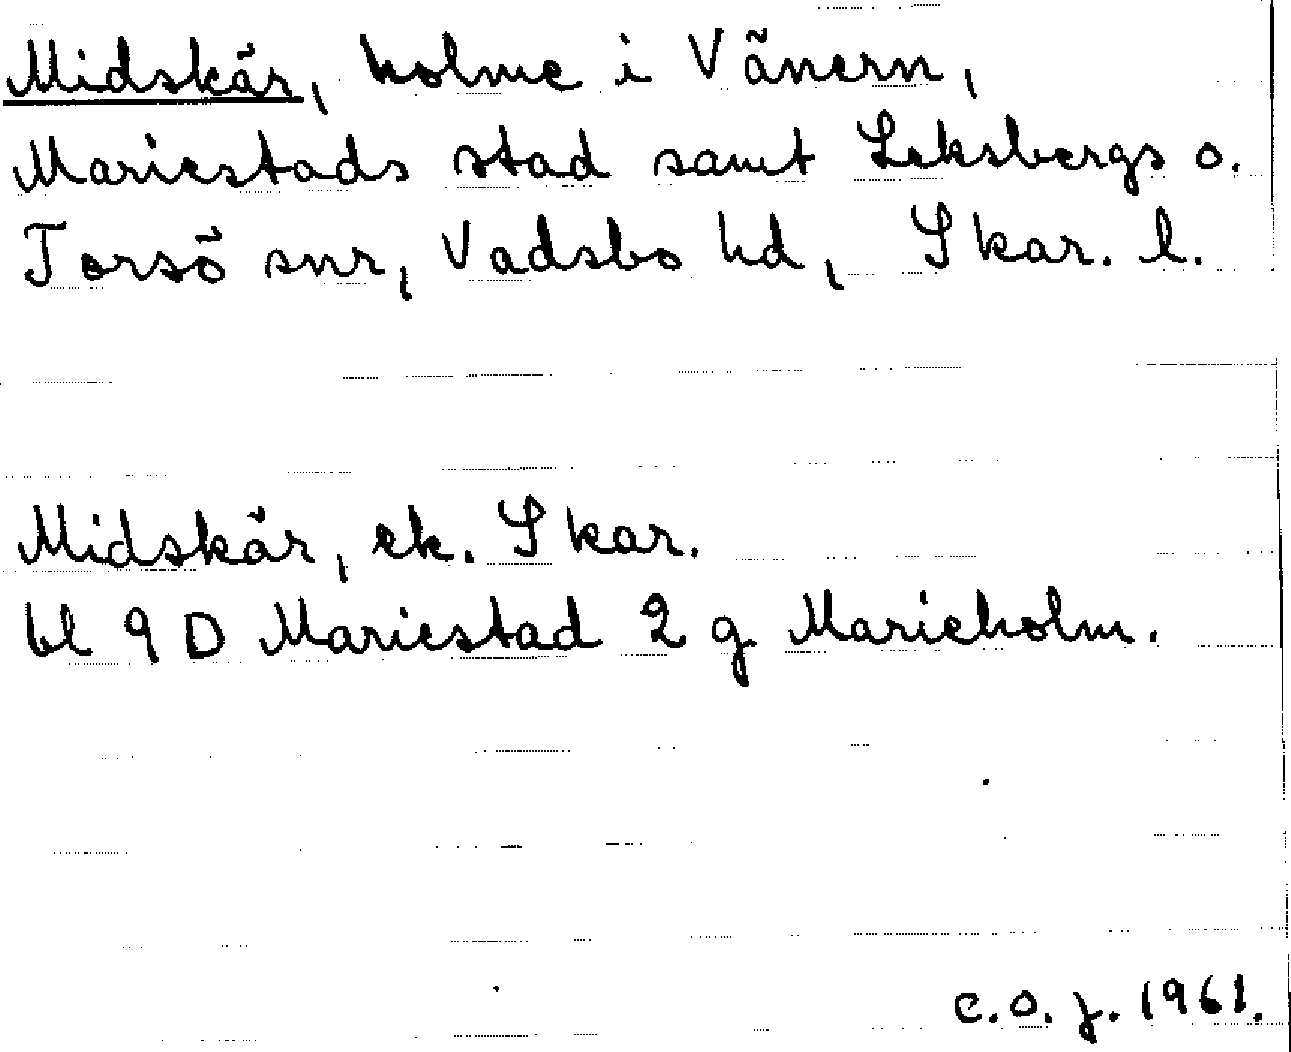 Midskär, holme i Vänern,
Mariestads stad samt Leksbergs o.
Torsö snr, Vadsbo hd, Skar. l.
Midskär, ek. Skar.
bl 9 D Mariestad 2 g Marieholm.
C.O.J. 1961.